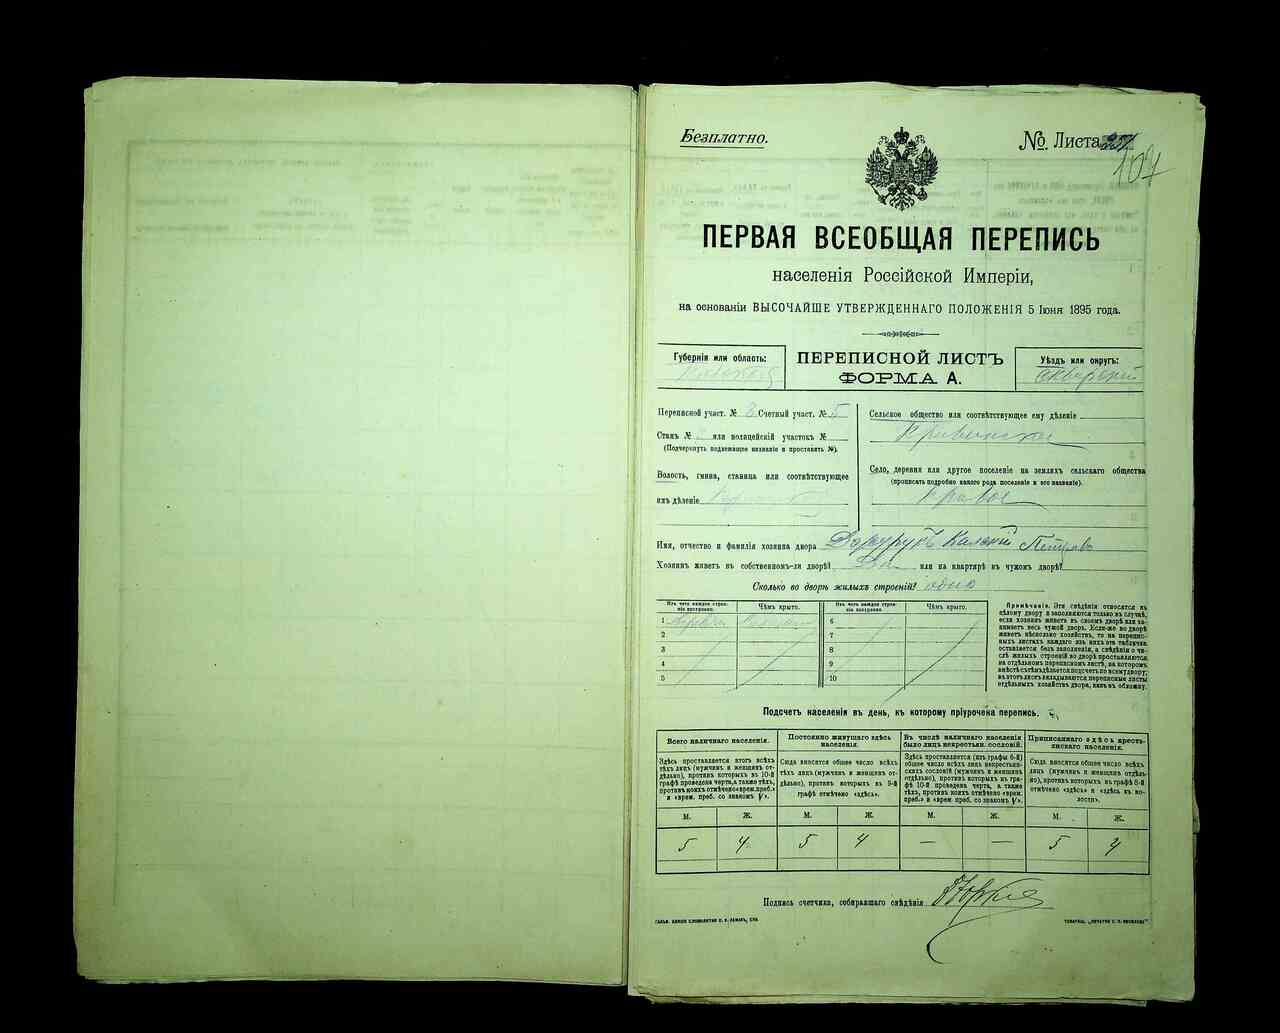 Безплатно.
№ Листа
107
ПЕРВАЯ ВСЕОБЩАЯ ПЕРЕПИСЬ
населенія Россійской Имперіи,
на основаніи ВЫСОЧАЙШЕ УТВЕРЖДЕННАГО ПОЛОЖЕНІЯ 5 Іюня 1895 года.
Губернія или область:
ПЕРЕПИСНОЙ ЛИСТЪ
ФОРМА А.
Уѣздъ или округъ:
Переписной участ. № 3 Счетный участ. № 5
Станъ № или полицейскій участокъ №
(Подчеркнуть подлежащее названіе и проставить №).
Волость, гмина, станица или соотвѣтствующее
имъ дѣленіе
Сельское общество или соотвѣтствующее ему дѣленіе
Село, деревня или другое поселеніе на земляхъ сельскаго общества
(прописать подробно какого рода поселеніе и его названіе).
Кривое
Имя, отчество и фамилія хозяина двора
Хозяинъ живетъ въ собственномъ-ли дворѣ? или на квартирѣ въ чужомъ дворѣ?
Сколько во дворѣ жилыхъ строеній? одно
Изъ чего каждое строеніе построено.
Чѣмъ крыто.
Изъ чего каждое строеніе построено.
Чѣмъ крыто.
1 6
2 7
3 8
4 9
5 10
Примѣчаніе. Эти свѣдѣнія относятся къ
цѣлому двору и заполняются только въ случаѣ,
если хозяинъ живетъ въ своемъ дворѣ или занимаетъ
весь чужой дворъ. Если-же во дворѣ
живетъ нѣсколько хозяйствъ, то на переписныхъ
листахъ каждаго изъ нихъ эта табличка
оставляется безъ заполненія, а свѣдѣнія о числѣ
жилыхъ строеній во дворѣ проставляются
на отдѣльномъ переписномъ листѣ, на которомъ
вмѣстѣ съ тѣмъ дѣлается подсчетъ по всему двору;
въ этотъ листъ вкладываются переписные листы
отдѣльныхъ хозяйствъ двора, какъ въ обложку.
Подсчетъ населенія въ день, къ которому пріурочена перепись.
Всего наличнаго населенія.
Постоянно живущаго здѣсь населенія.
Въ числѣ наличнаго населенія было лицъ некрестьян. сословій.
Приписаннаго здѣсь крестьянскаго населенія.
Здѣсь проставляется итогъ всѣхъ тѣхъ лицъ (мужчинъ и женщинъ отдѣльно), противъ которыхъ въ 10-й графѣ проведена черта, а также тѣхъ, противъ коихъ отмѣчено «врем. преб.» и «врем. преб. со знакомъ V».
Сюда вносится общее число всѣхъ тѣхъ лицъ (мужчинъ и женщинъ отдѣльно), противъ которыхъ въ 9-й графѣ отмѣчено «здѣсь».
Здѣсь проставляется (изъ графы 6-й) общее число всѣхъ лицъ некрестьянскихъ сословій (мужчинъ и женщинъ отдѣльно), противъ которыхъ въ графѣ 10-й проведена черта, а также тѣхъ, противъ коихъ отмѣчено «врем. преб.» и «врем. преб. со знакомъ V».
Сюда вносится общее число всѣхъ лицъ (мужчинъ и женщинъ отдѣльно), противъ которыхъ въ графѣ 8-й отмѣчено «здѣсь» и «здѣсь въ волости».
М. Ж. М. Ж. М. Ж. М. Ж.
5 4 5 4 — — 5 4
Подпись счетчика, собиравшаго свѣдѣнія